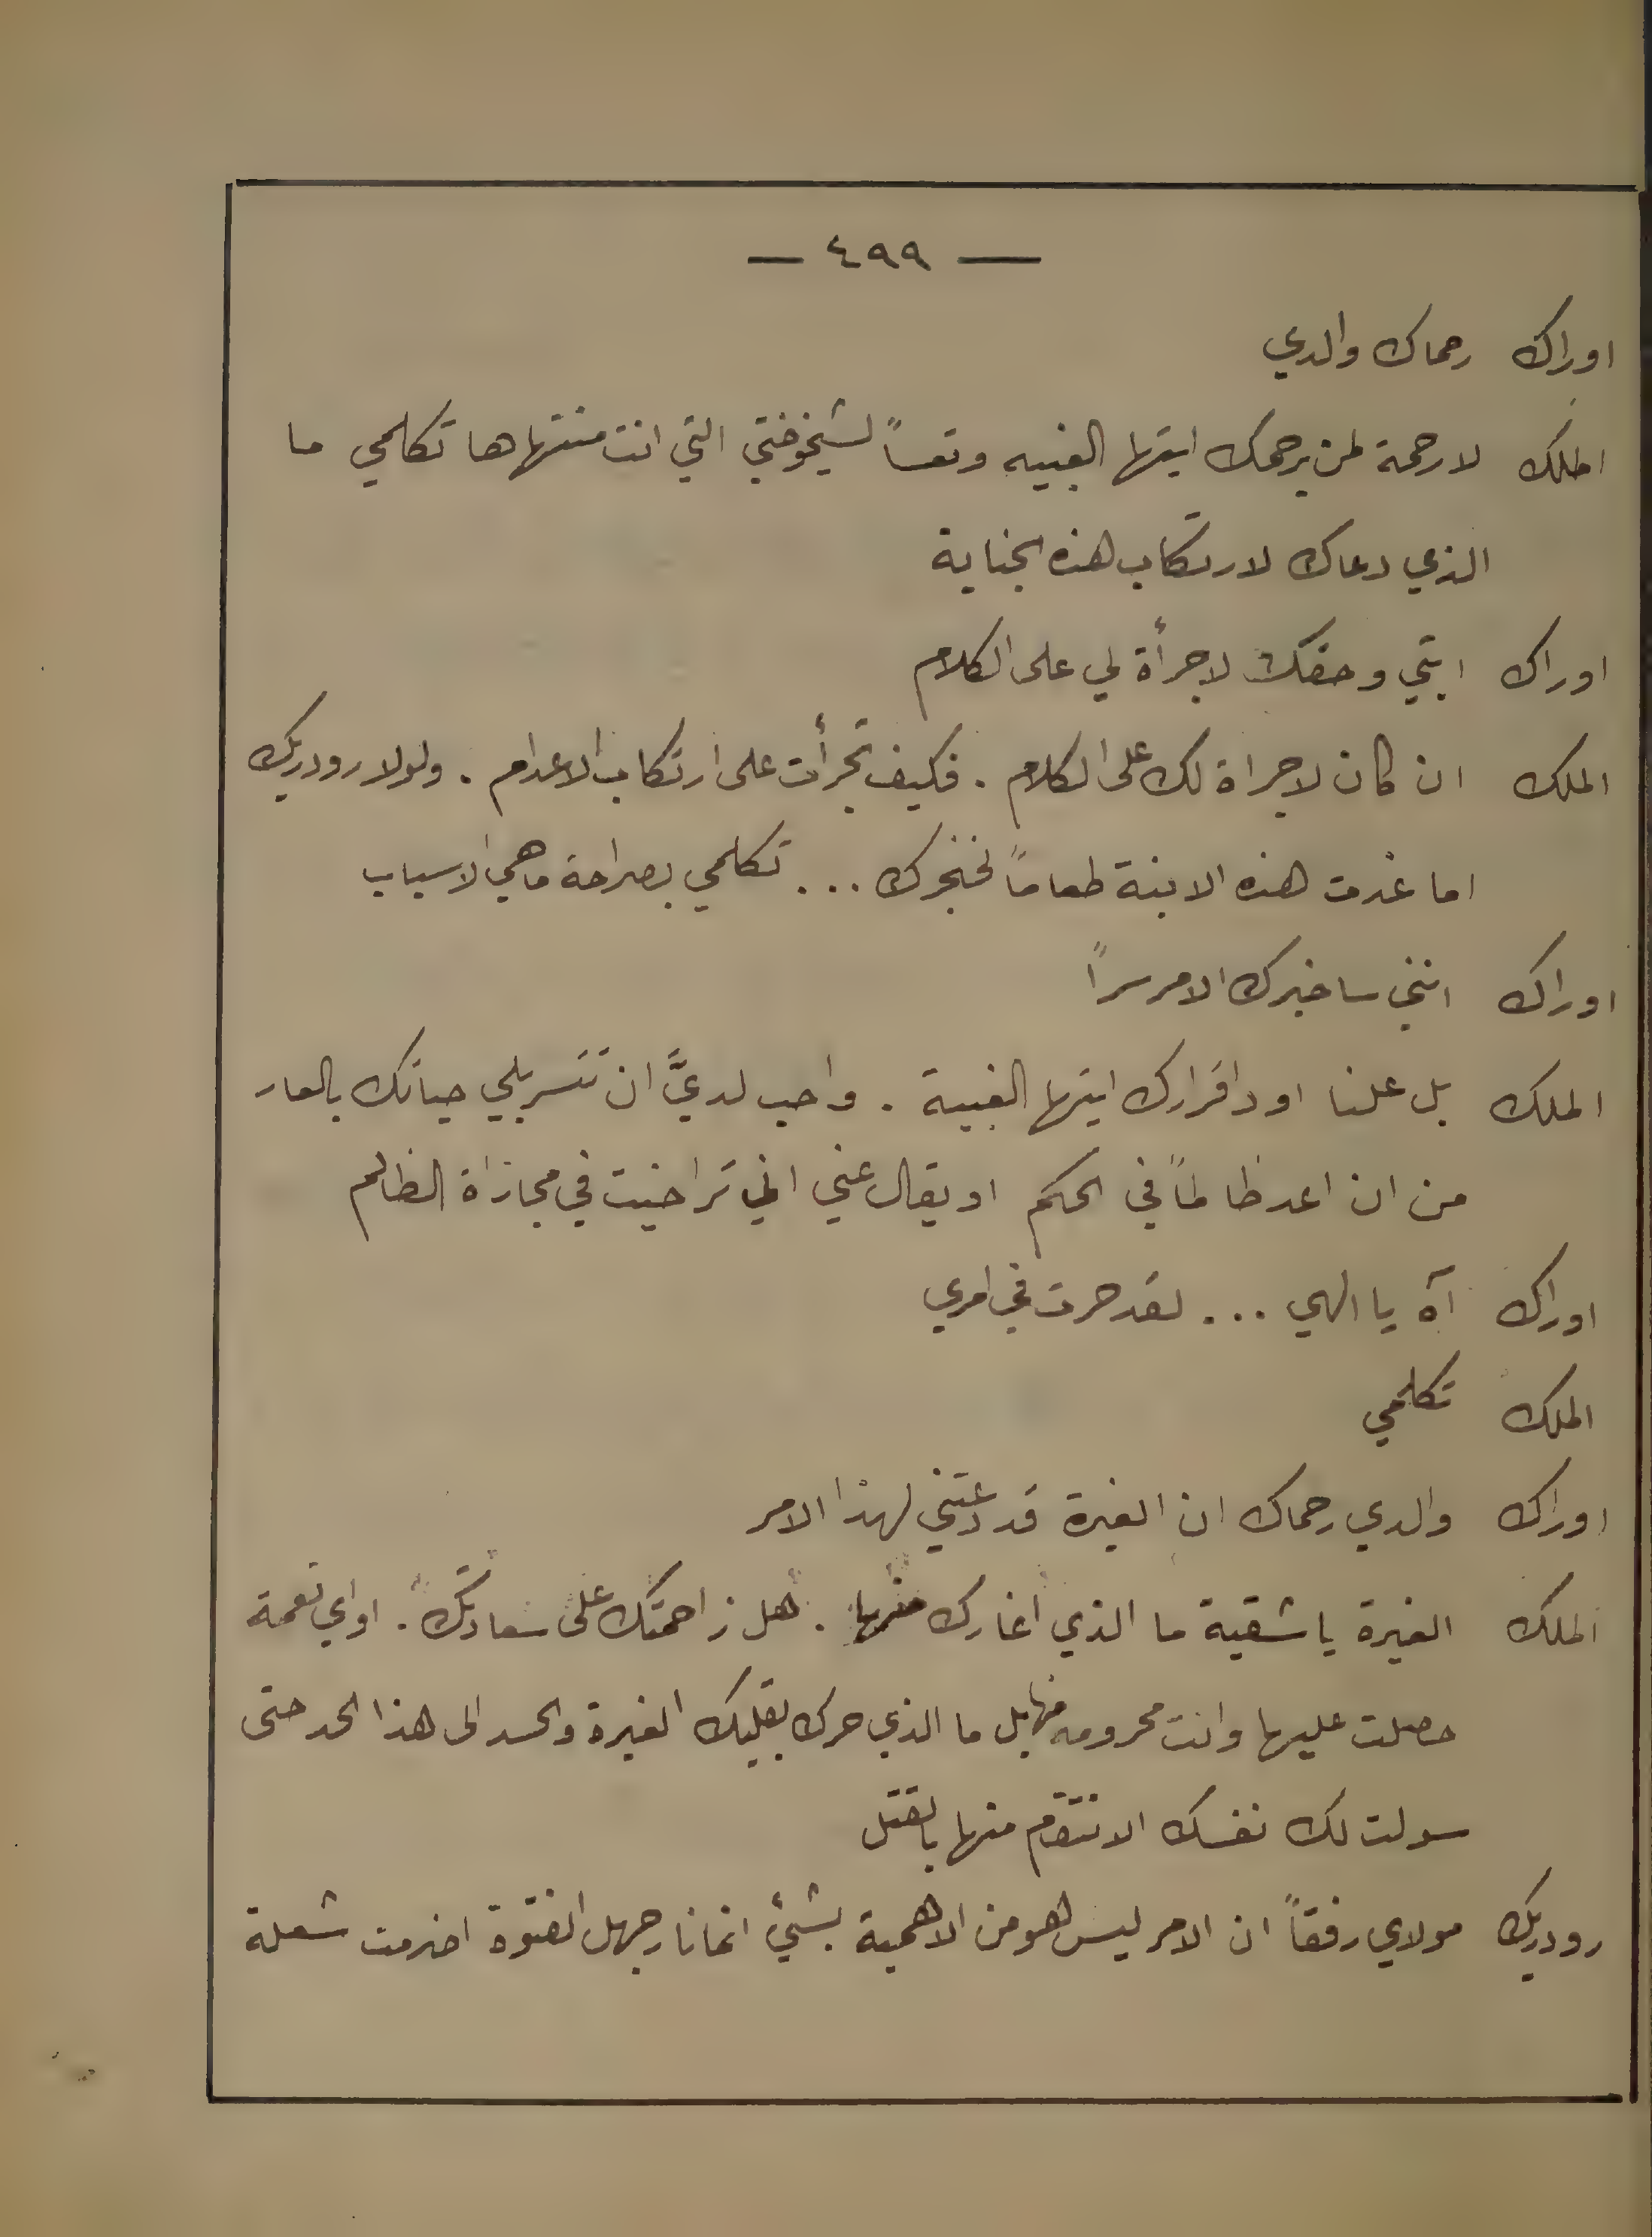 — ٤٩٩ —
اوراك رحماك والدي
الملك لا رحمة لمن يرحمك ايتها الغبيه وتعساً لشيخوختي التي انت منتهاها تكلمي ما
الذي دعاك لارتكاب هذه الجناية
اوراك ابتي وحقك لا جرأة لي على الكلام
الملك ان كان لا جراة لك على الكلام . فكيف تجرأت على ارتكاب الاعدام . ولولا رودريك
اما غدت هذه الابنة طعاماً لخنجرك ... تكلمي بصراحة ما هي الاسباب
اوراك انني ساخبرك الامر سراً
الملك بل علنا اود اقرارك ايتها الغبية . واحب لديَّ ان تتسربلي حياتك بالعار
من ان اعد ظالماً في الحكم او يقال عني اني تراخيت في مجازاة الظالم
اوراك آه يا الهي ... لقد حرت في امري
الملك تكلمي
اوراك والدي رحماك ان الغيرة قد دعتني لهذا الامر
الملك الغيرة يا شقية ما الذي اغارك منها . هل زاحمتك على سعادتك . او اي نعمة
حصلت عليها وانت محرومه منها بل ما الذي حرك بقلبك الغيرة والحسد الى هذا الحد حتى
سولت لك نفسك الانتقام منها بالقتل
رودريك مولاي رفقاً ان الامر ليس هو من الاهمية بشيء انما نار جهل الفتوة اضرمت شعلة